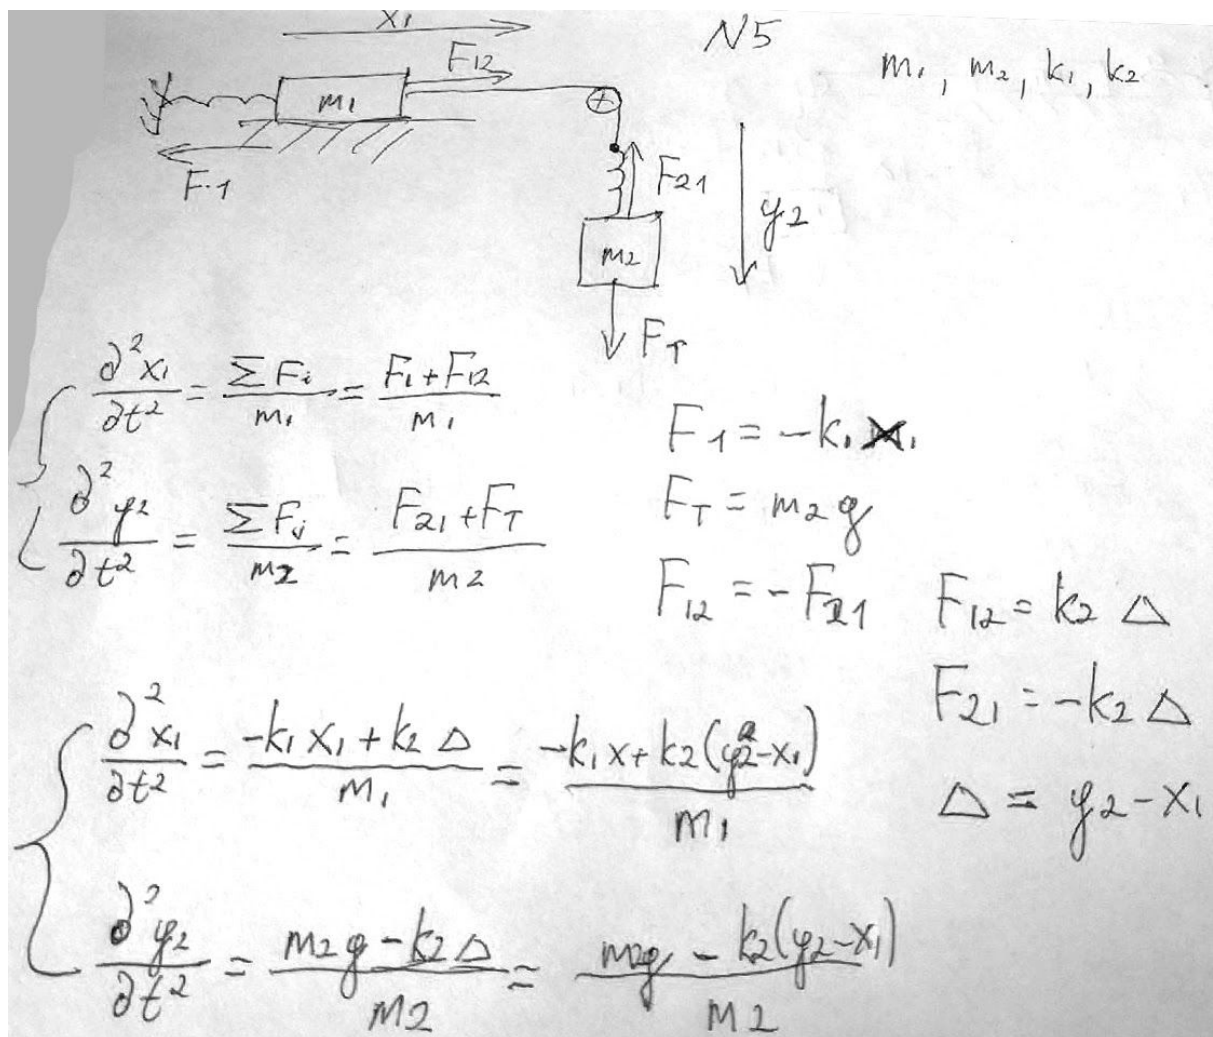 x₁
N5
m₁, m₂, k₁, k₂
F₁₂
m₁
F₁
F₂₁
y₂
m₂
F_T
∂²x₁/∂t² = ΣFᵢ/m₁ = (F₁+F₁₂)/m₁
F₁ = -k₁x₁
∂²y₂/∂t² = ΣFⱼ/m₂ = (F₂₁+F_T)/m₂
F_T = m₂g
F₁₂ = -F₂₁
F₁₂ = k₂Δ
F₂₁ = -k₂Δ
Δ = y₂-x₁
∂²x₁/∂t² = (-k₁x₁+k₂Δ)/m₁ = (-k₁x+k₂(y₂-x₁))/m₁
∂²y₂/∂t² = (m₂g-k₂Δ)/m₂ = (m₂g-k₂(y₂-x₁))/m₂